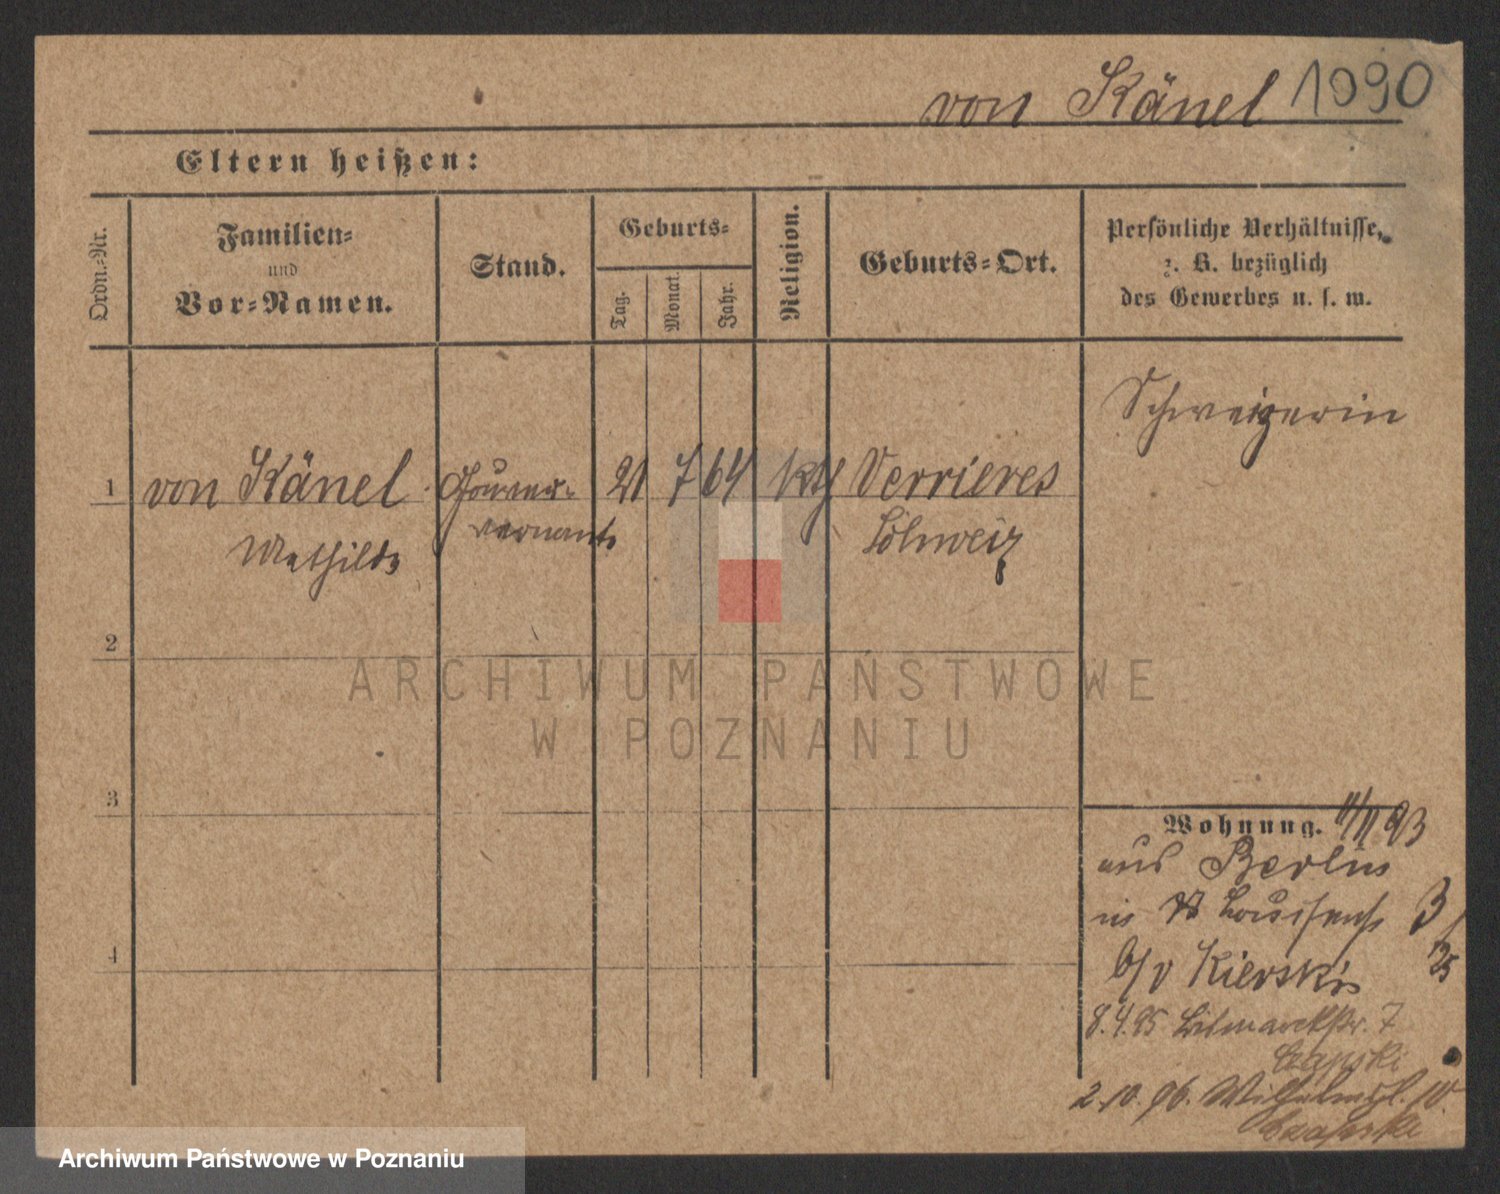 von Känel 1090
Eltern heißen:
Ordn.-Nr.
Familien-
und
Vor-Namen.
Stand.
Geburts-
Tag.
Monat.
Jahr.
Religion.
Geburts-Ort.
Persönliche Verhältnisse,
z. B. bezüglich
des Gewerbes u. s. w.
Schweizerin
1 von Känel Gouver- 21 7 64 kth Verrieres
Mathilde vernante Schweiz
2
3
4
ARCHIWUM PAŃSTWOWE
W POZNANIU
Wohnung. 11/11 93
aus Berlin
in Louisenstr 3
b/v Kierski
8.4.95 Bismarckstr. 7
Czapski
2.10.96. Wilhelmspl. 10.
Czapski
Archiwum Państwowe w Poznaniu